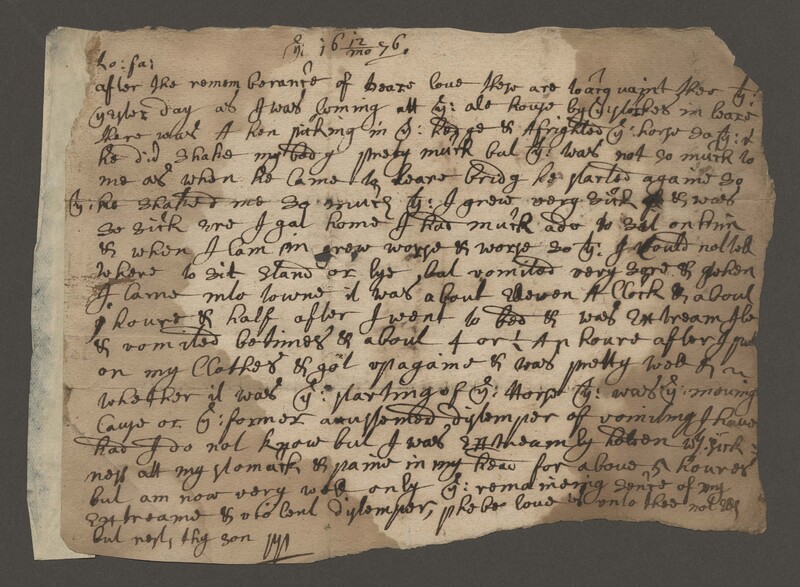 ye 16 12/mo 76.
Lo: fa:
after the remembrance of deare love these are to acquaint thee yt:
yester day as I was Coming att ye: ale house by ye stockes in
there was A hen picking in ye: hedge & Afrighted ye: horse so yt:
he did shake my body prety much but yt: was not so much to
me as when he came to beare bridg he started againe so
yt: he shaked me so much yt: I grew very sick & was
so sick ere I gat home I had much ado to sit on him
& when I Cam in grew worse & worse so yt: I Could not tell
where to sit stand or lye, but vomited very sore & when
I came into towne it was about Eleven A Clock & about
houre & half after I went to bed & was Extreame Ile
& vomited betimes & about 4 or houre after I put
on my Clothes & got up againe & was pretty well &
whether it was ye: starting of ye: Horse yt: was ye: moving
Cause or ye: former accustomed distemper of vomiting I have
had I do not know but I was Extreamly sick
ness att my stomack & paine in my head for above 5 houres
but am now very well only ye: remaineing sence of my
Extreame & violent distemper, phebe love is unto thee not Els
but rest, thy son